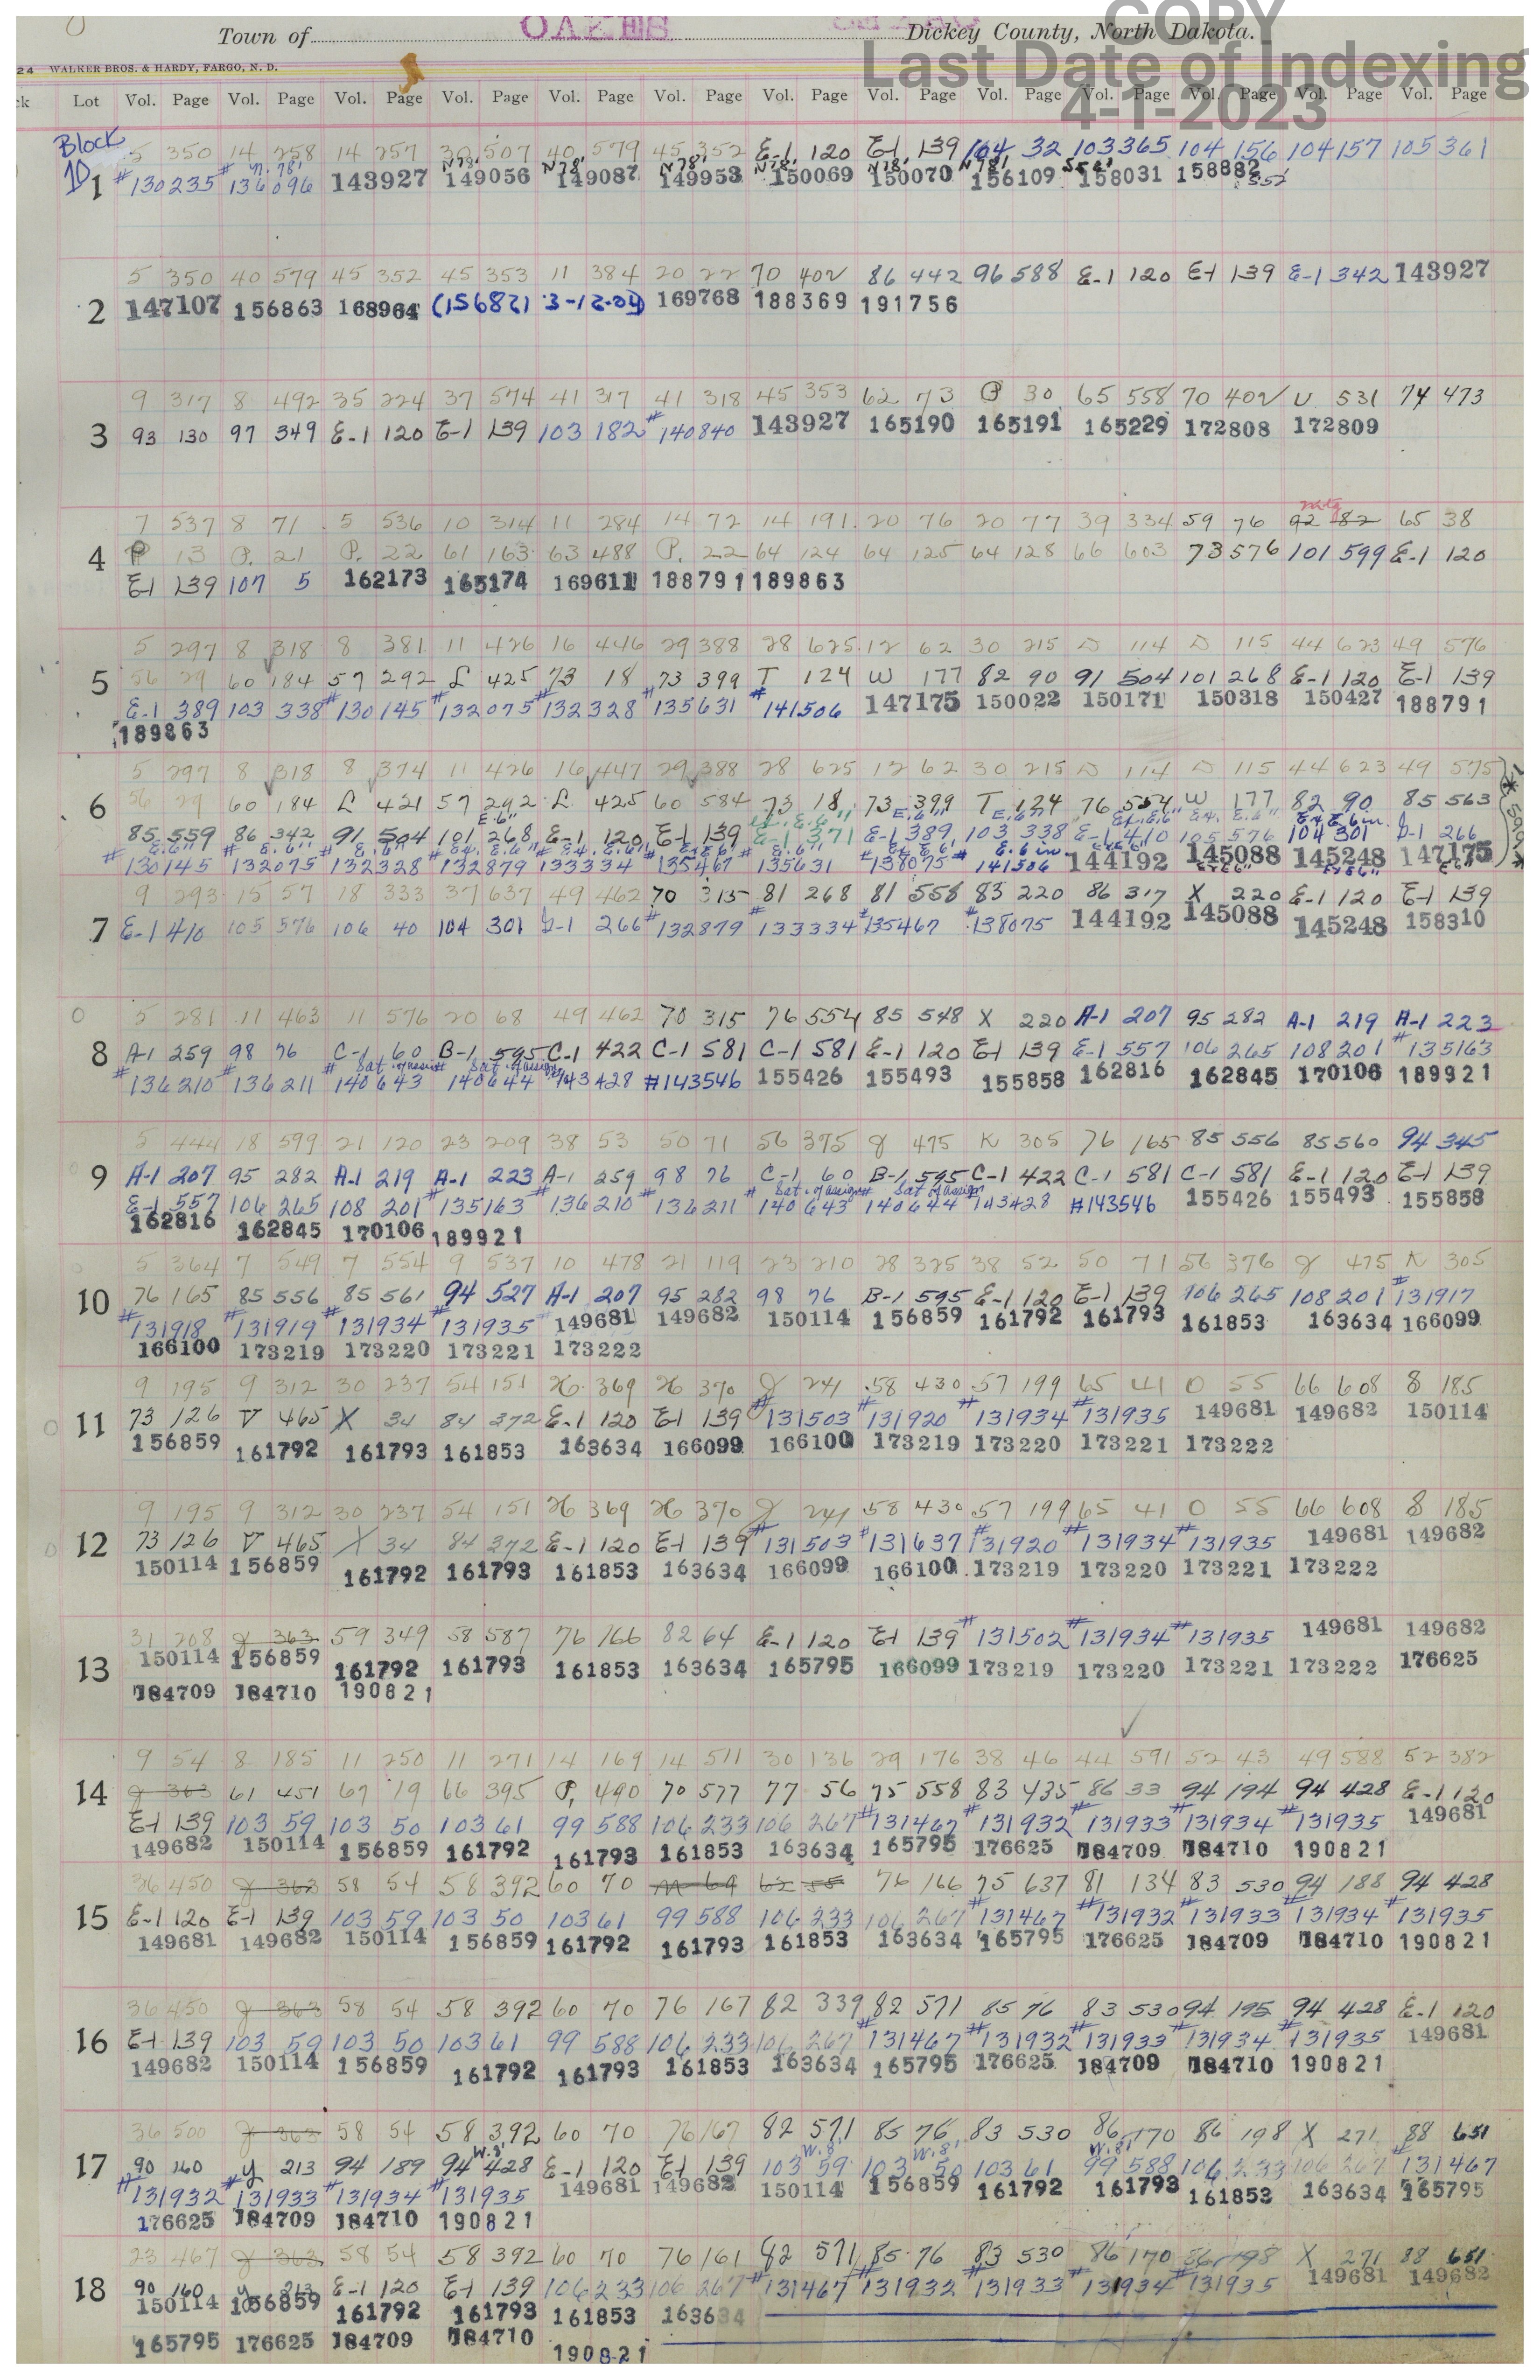 COPY
Town of OAKES Dickey County, North Dakota.
Last Date of Indexing
24 WALKER BROS. & HARDY, FARGO, N. D.
4-1-2023
ck Lot Vol. Page Vol. Page Vol. Page Vol. Page Vol. Page Vol. Page Vol. Page Vol. Page Vol. Page Vol. Page Vol. Page Vol. Page Vol. Page
Block
10
5 350 14 258 14 257 30 507 40 579 45 352 E-1 120 E-1 139 104 32 103 365 104 156 104 157 105 361
1 #130235 #136096 143927 N78' 149056 N78' 149087 N78' 149953 N78' 150069 N78' 150070 N78' 156109 158031 158882
5 350 40 579 45 352 45 353 11 384 20 22 70 402 86 442 96 588 E-1 120 E-1 139 E-1 342 143927
2 147107 156863 168964 (156821 3-12-04) 169768 188369 191756
9 317 8 492 35 224 37 574 41 317 41 318 45 353 62 73 P 30 65 558 70 402 U 531 74 473
3 93 130 97 349 E-1 120 E-1 139 103 182 #140840 143927 165190 165191 165229 172808 172809
7 537 8 71 5 536 10 314 11 284 14 72 14 191 20 76 20 77 39 334 59 76 mtg 92 82 65 38
4 P 13 P. 21 P. 22 61 163 63 488 P. 22 64 124 64 125 64 128 66 603 73 576 101 599 E-1 120
E-1 139 107 5 162173 165174 169611 188791 189863
5 297 8 318 8 381 11 426 16 446 29 388 28 625 12 62 30 215 D 114 D 115 44 623 49 576
5 56 29 60 184 57 292 L 425 73 18 73 399 T 124 W 177 82 90 91 504 101 268 E-1 120 E-1 139
E-1 389 103 338 #130145 #132075 #132328 #135631 #141506 147175 150022 150171 150318 150427 188791
189863
5 297 8 318 8 374 11 426 16 447 29 388 28 625 12 62 30 215 D 114 D 115 44 623 49 575
6 56 29 60 184 L 421 57 292 L 425 60 584 73 18 73 399 T 124 76 554 W 177 82 90 85 563
85 559 86 342 91 504 101 268 E-1 120 E-1 139 E-1 371 E-1 389 103 338 E-1 410 105 576 104 301 J-1 266
#130145 #132075 #132328 #132879 #133334 #135467 #135631 #138075 #141506 144192 145088 145248 147175
9 293 15 57 18 333 37 637 49 462 70 315 81 268 81 558 83 220 86 317 X 220 E-1 120 E-1 139
7 E-1 410 105 576 106 40 104 301 J-1 266 #132879 #133334 #135467 #138075 144192 145088 145248 158310
5 281 11 463 11 576 20 68 49 462 70 315 76 554 85 548 X 220 A-1 207 95 282 A-1 219 A-1 223
8 A-1 259 98 76 C-1 60 B-1 595 C-1 422 C-1 581 C-1 581 E-1 120 E-1 139 E-1 557 106 265 108 201 #135163
#136210 #136211 #140643 #140644 #143428 #143546 155426 155493 155858 162816 162845 170106 189921
5 444 18 599 21 120 23 209 38 53 50 71 56 375 J 475 K 305 76 165 85 556 85 560 94 345
9 A-1 207 95 282 A-1 219 A-1 223 A-1 259 98 76 C-1 60 B-1 595 C-1 422 C-1 581 C-1 581 E-1 120 E-1 139
E-1 557 106 265 108 201 #135163 #136210 #136211 #140643 #140644 143428 #143546 155426 155493 155858
162816 162845 170106 189921
5 364 7 549 7 554 9 537 10 478 21 119 23 210 28 325 38 52 50 71 56 376 J 475 K 305
10 76 165 85 556 85 561 94 527 A-1 207 95 282 98 76 B-1 595 E-1 120 E-1 139 106 265 108 201 #131917
#131918 #131919 #131934 #131935 149681 149682 150114 156859 161792 161793 161853 163634 166099
166100 173219 173220 173221 173222
9 195 9 312 30 237 54 151 H 369 H 370 J 241 58 430 57 199 65 41 O 55 66 608 S 185
11 73 126 V 465 X 34 84 372 E-1 120 E-1 139 #131503 #131920 #131934 #131935 149681 149682 150114
156859 161792 161793 161853 163634 166099 166100 173219 173220 173221 173222
9 195 9 312 30 237 54 151 H 369 H 370 J 241 58 430 57 199 65 41 O 55 66 608 S 185
12 73 126 V 465 X 34 84 372 E-1 120 E-1 139 #131503 #131637 #131920 #131934 #131935 149681 149682
150114 156859 161792 161793 161853 163634 166099 166100 173219 173220 173221 173222
31 208 J 363 59 349 58 587 76 166 82 64 E-1 120 E-1 139 #131502 #131934 #131935 149681 149682
13 150114 156859 161792 161793 161853 163634 165795 166099 173219 173220 173221 173222 176625
184709 184710 190821
9 54 8 185 11 250 11 271 14 169 14 511 30 136 29 176 38 46 44 591 52 43 49 588 52 382
14 J 363 61 451 67 19 66 395 P, 490 70 577 77 56 75 558 83 435 86 33 94 194 94 428 E-1 120
E-1 139 103 59 103 50 103 61 99 588 106 233 106 267 #131467 #131932 #131933 #131934 #131935 149681
149682 150114 156859 161792 161793 161853 163634 165795 176625 184709 184710 190821
36 450 J 363 58 54 58 392 60 70 M 69 62 55 76 166 75 637 81 134 83 530 94 188 94 428
15 E-1 120 E-1 139 103 59 103 50 103 61 99 588 106 233 106 267 #131467 #131932 #131933 #131934 #131935
149681 149682 150114 156859 161792 161793 161853 163634 165795 176625 184709 184710 190821
36 450 J 363 58 54 58 392 60 70 76 167 82 339 82 571 85 76 83 530 94 195 94 428 E-1 120
16 E-1 139 103 59 103 50 103 61 99 588 106 233 106 267 #131467 #131932 #131933 #131934 #131935 149681
149682 150114 156859 161792 161793 161853 163634 165795 176625 184709 184710 190821
36 500 J 363 58 54 58 392 60 70 76 167 82 571 85 76 83 530 86 170 86 198 X 271 88 651
17 90 160 Y 213 94 189 94 428 E-1 120 E-1 139 103 59 103 50 103 61 99 588 106 233 106 267 #131467
#131932 #131933 #131934 #131935 149681 149682 150114 156859 161792 161793 161853 163634 165795
176625 184709 184710 190821
23 467 J 363 58 54 58 392 60 70 76 161 82 571 85 76 83 530 86 170 86 198 X 271 88 651
18 90 160 Y 213 E-1 120 E-1 139 106 233 106 267 #131467 #131932 #131933 #131934 #131935 149681 149682
150114 156859 161792 161793 161853 163634
165795 176625 184709 184710 190821